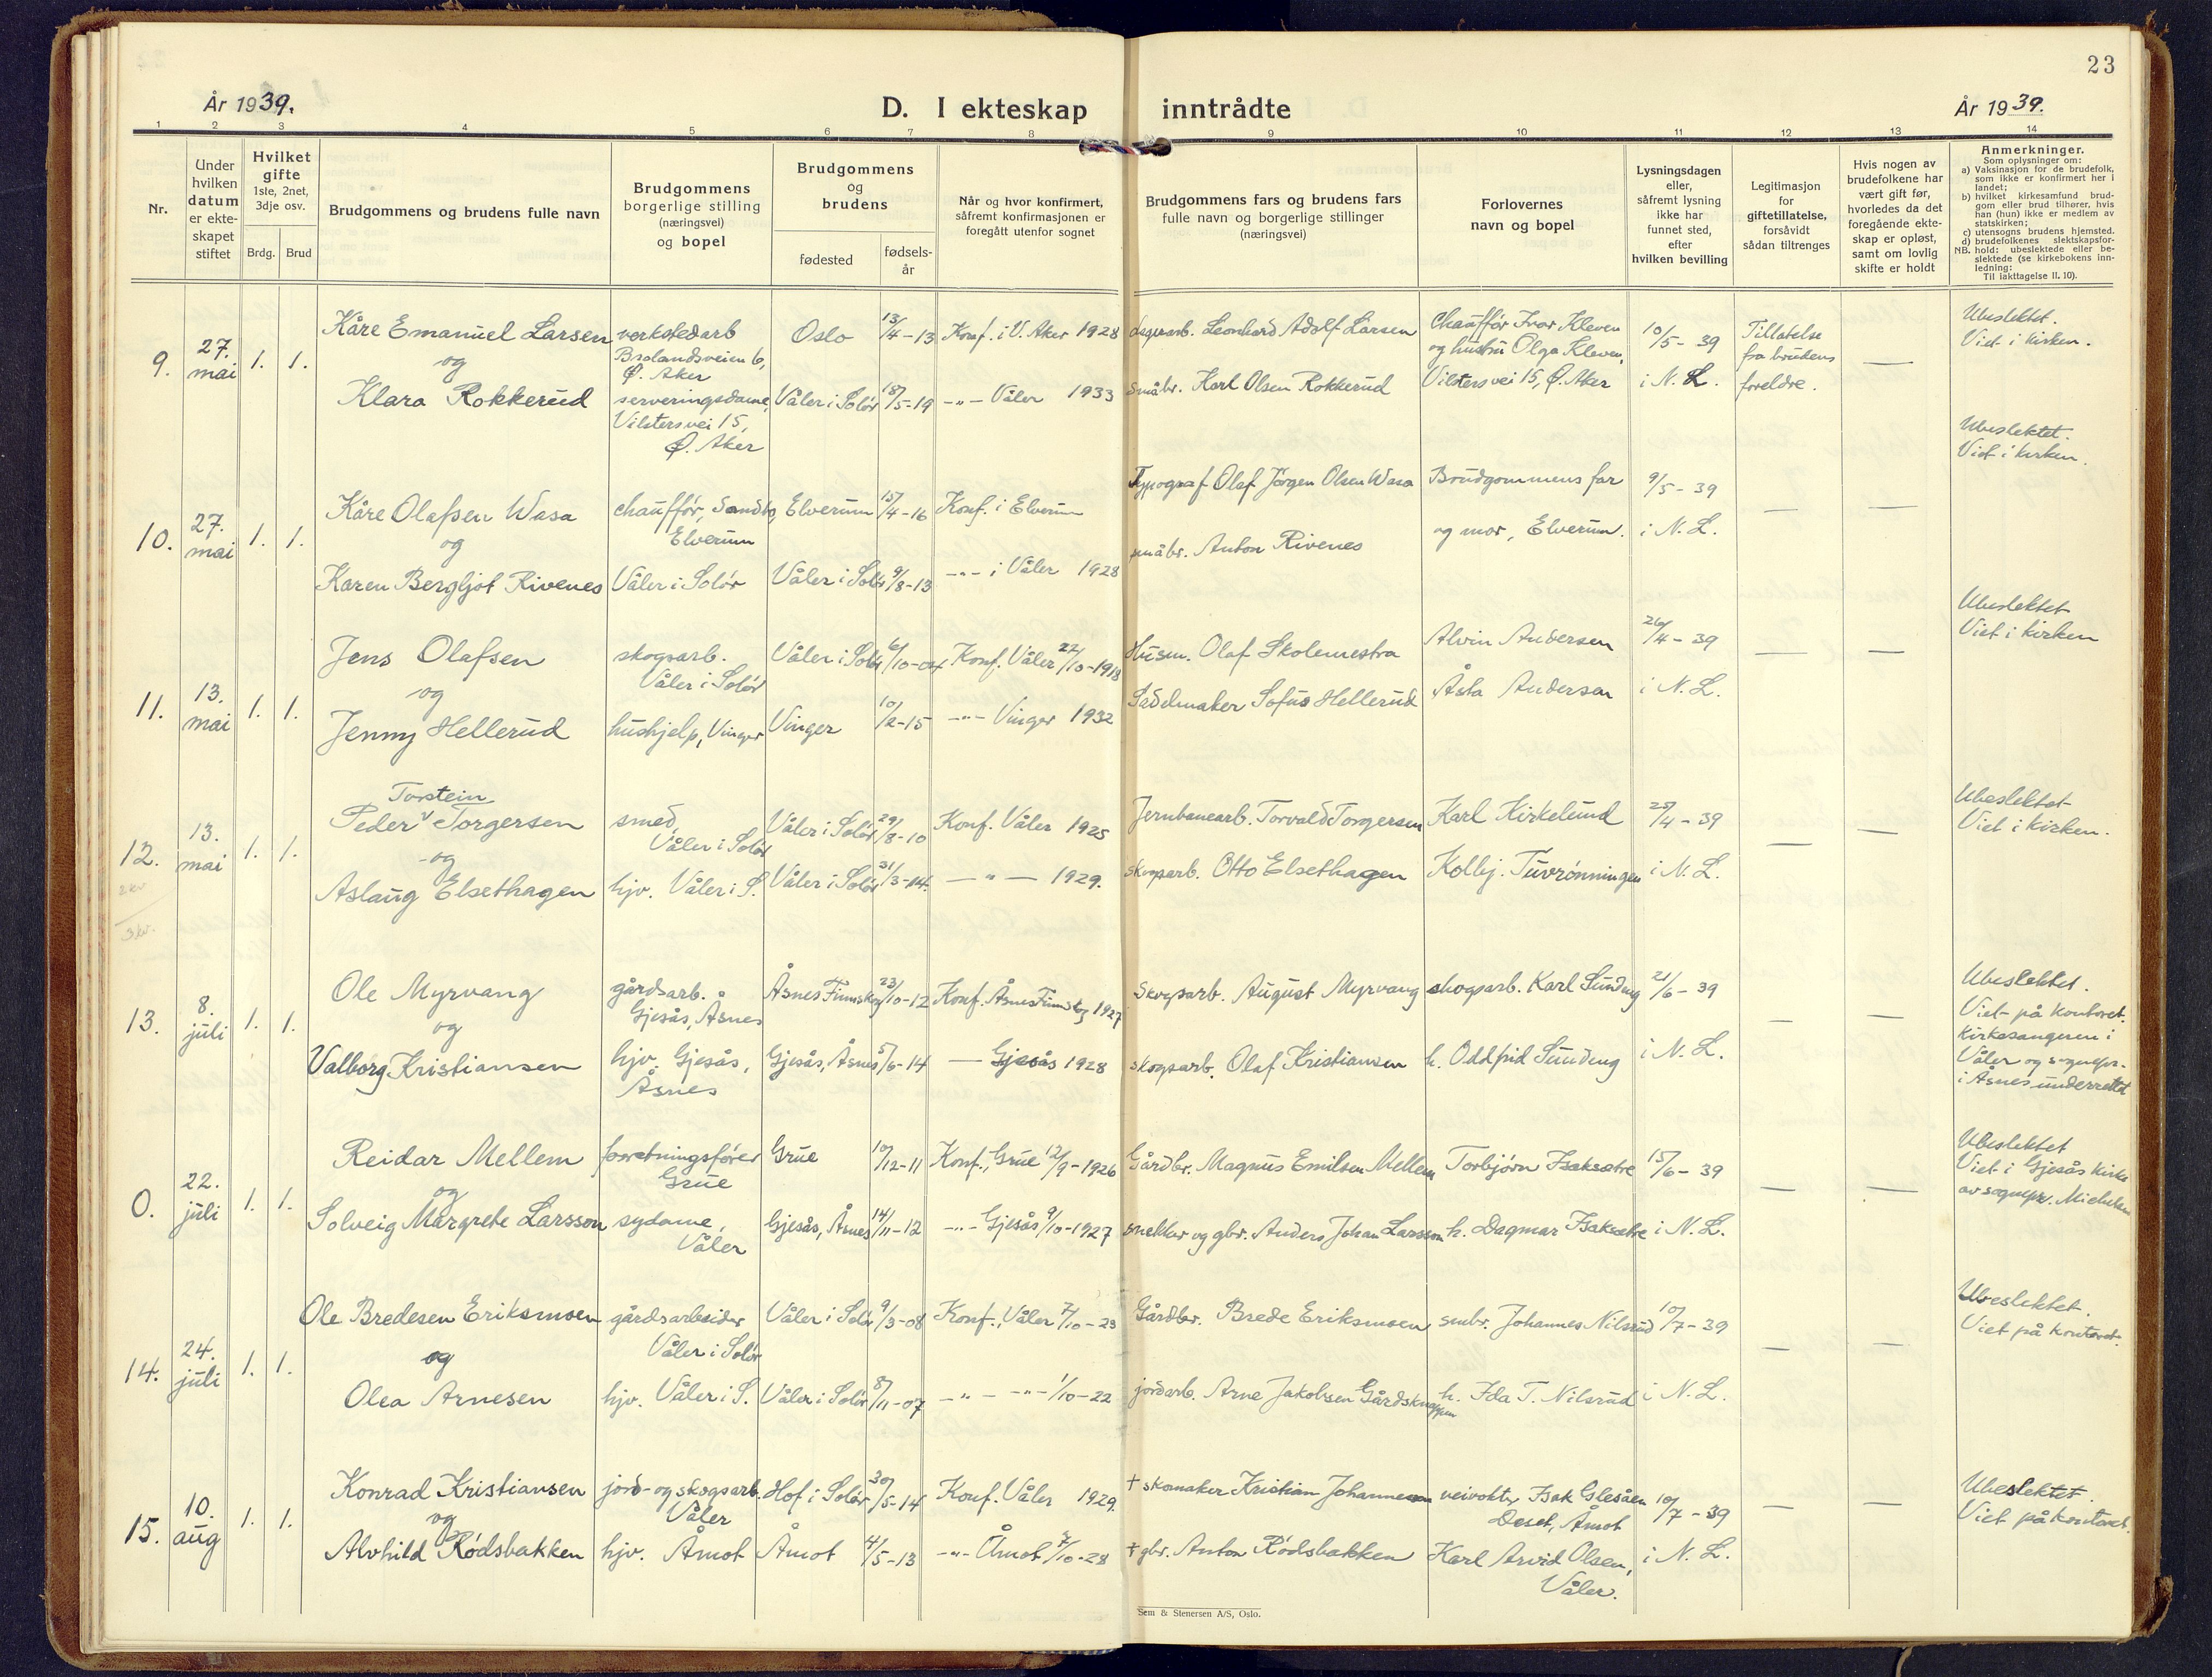 23
År 1939.
D. I ekteskap inntrådte
År 1939.
1 2 3 4 5 6 7 8 9 10 11 12 13 14
Nr.
Under hvilken datum er ekteskapet stiftet
Hvilket gifte
1ste, 2net, 3dje osv.
Brdg. Brud
Brudgommens og brudens fulle navn
Brudgommens borgerlige stilling (næringsvei) og bopel
Brudgommens og brudens
fødested
fødselsår
Når og hvor konfirmert, såfremt konfirmasjonen er foregått utenfor sognet
Brudgommens fars og brudens fars fulle navn og borgerlige stillinger (næringsvei)
Forlovernes navn og bopel
Lysningsdagen eller, såfremt lysning ikke har funnet sted, efter hvilken bevilling
Legitimasjon for giftetillatelse, forsåvidt sådan tiltrenges
Hvis nogen av brudefolkene har vært gift før, hvorledes da det foregående ekteskap er opløst, samt om lovlig skifte er holdt
Anmerkninger.
Som oplysninger om:
a) Vaksinasjon for de brudefolk, som ikke er konfirmert her i landet;
b) hvilket kirkesamfund brudgom eller brud tilhører, hvis han (hun) ikke er medlem av statskirken;
c) utensogns brudens hjemsted.
d) brudefolkenes slektskapsforhold: ubeslektede eller beslektede (se kirkebokens innledning: Til iakttagelse II. 10).
NB.
9. 27. mai 1. 1.
Kåre Emanuel Larsen verkstedarb Brolandsveien 6, Ø. Aker Oslo 13/4-13 Konf. i V. Aker 1928 Lagerarb. Leonhard Adolf Larsen Chauffør Ivar Kleven og hustru Olga Kleven, 10/5-39 Tillatelse fra brudens — Ubeslektet. Viet i kirken.
og
Klara Rokkerud serveringsdame, Vilstersvei 15, Ø. Aker Våler i Solør 18/5-19 -"- Våler 1933 Småbr. Karl Olsen Rokkerud Vilstersvei 15, Ø. Aker i N. L. foreldre.
10. 27. mai 1. 1.
Kåre Olafsen Wasa chauffør, Sandbo, Elverum Elverum 15/4-16 Konf. i Elverum Typograf Olaf Jørgen Olsen Wasa Brudgommens far 9/5-39 — — Ubeslektet. Viet i kirken.
og
Karen Bergljot Rivenes Våler i Solør Våler i Solør 9/8-13 -"- i Våler 1928 småbr. Anton Rivenes og mor, Elverum. i N. L.
11. 13. mai 1. 1.
Jens Olafsen skogsarb. Våler i Solør Våler i Solør 6/10-04 Konf. Våler 22/10-1918 Husm. Olaf Skolemestra Alvin Andersen 26/4-39 — — Ubeslektet Viet i kirken
og
Jenny Hellerud hushjelp, Vinger Vinger 10/2-15 -"- Vinger 1932 Sadelmaker Sofus Hellerud Åsta Andersen i N. L.
12. 13. mai 1. 1.
2 kv
3 kv.
Torstein
Peder Torgersen smed, Våler i Solør Våler i Solør 29/8-10 Konf. Våler 1925 Jernbanearb. Torvald Torgersen Karl Kirkelund 25/4-39 — — Ubeslektet Viet i kirken.
og
Aslaug Elsethagen hjv. Våler i S. Våler i Solør 31/3-14. — " — 1929. skogsarb. Otto Elsethagen Kolbj. Tuvrønningen i N. L.
13. 8. juli 1. 1.
Ole Myrvang gårdsarb. Gjesås, Åsnes Åsnes Finnskog 23/10-12 Konf. Åsnes Finnskog 1927 Skogsarb. August Myrvang skogsarb. Karl Sundeng 21/6-39 — — Ubeslektet. Viet på kontoret. Kirkesangeren i Våler og sognepr. i Åsnes underrettet
og
Valborg Kristiansen hjv. Gjesås, Åsnes Gjesås, Åsnes 5/6-14 — Gjesås 1928 skogsarb. Olaf Kristiansen h. Oddfrid Sundeng i N. L.
0. 22. juli 1. 1.
Reidar Mellem forretningsfører Grue Grue 10/12-11 Konf., Grue 12/9-1926 Gårdbr. Magnus Emilsen Mellem Torbjørn Isaksætre 15/6-39 — — Ubeslektet Viet i Gjesås kirke av sognepr. Michelsen
og
Solveig Margrete Larsson sydame, Våler Gjesås, Åsnes 14/11-12 -"- Gjesås 9/10-1927 snekker og gbr. Anders Johan Larsson h. Dagmar Isaksætre i N. L.
14. 24. juli 1. 1.
Ole Bredesen Eriksmoen gårdsarbeider Våler i Solør Våler i Solør 9/3-08 Konf., Våler 7/10-23 Gårdbr. Brede Eriksmoen smbr. Johannes Nilsrud 10/7-39 — — Ubeslektet. Viet på kontoret.
og
Olea Arnesen hjv. Våler i S. Våler i Solør 8/11-07 -"- -"- 1/10-22 jordarb. Arne Jakobsen Gårdsknappen h. Ida T. Nilsrud i N. L.
15. 10. aug 1. 1.
Konrad Kristiansen jord- og skogsarb. Våler Hof i Solør 30/5-14 Konf. Våler 1929. + skomaker Kristian Johannesen veivokter Isak Glesåen Deset, Åmot 10/7-39 — — Ubeslektet. Viet på kontoret.
og
Alvhild Rødsbakken hjv. Åmot Åmot 4/5-13 -"- Åmot 7/10-28 + gbr. Anton Rødsbakken Karl Arvid Olsen, Våler. i N. L.
Sem & Stenersen A/S, Oslo.